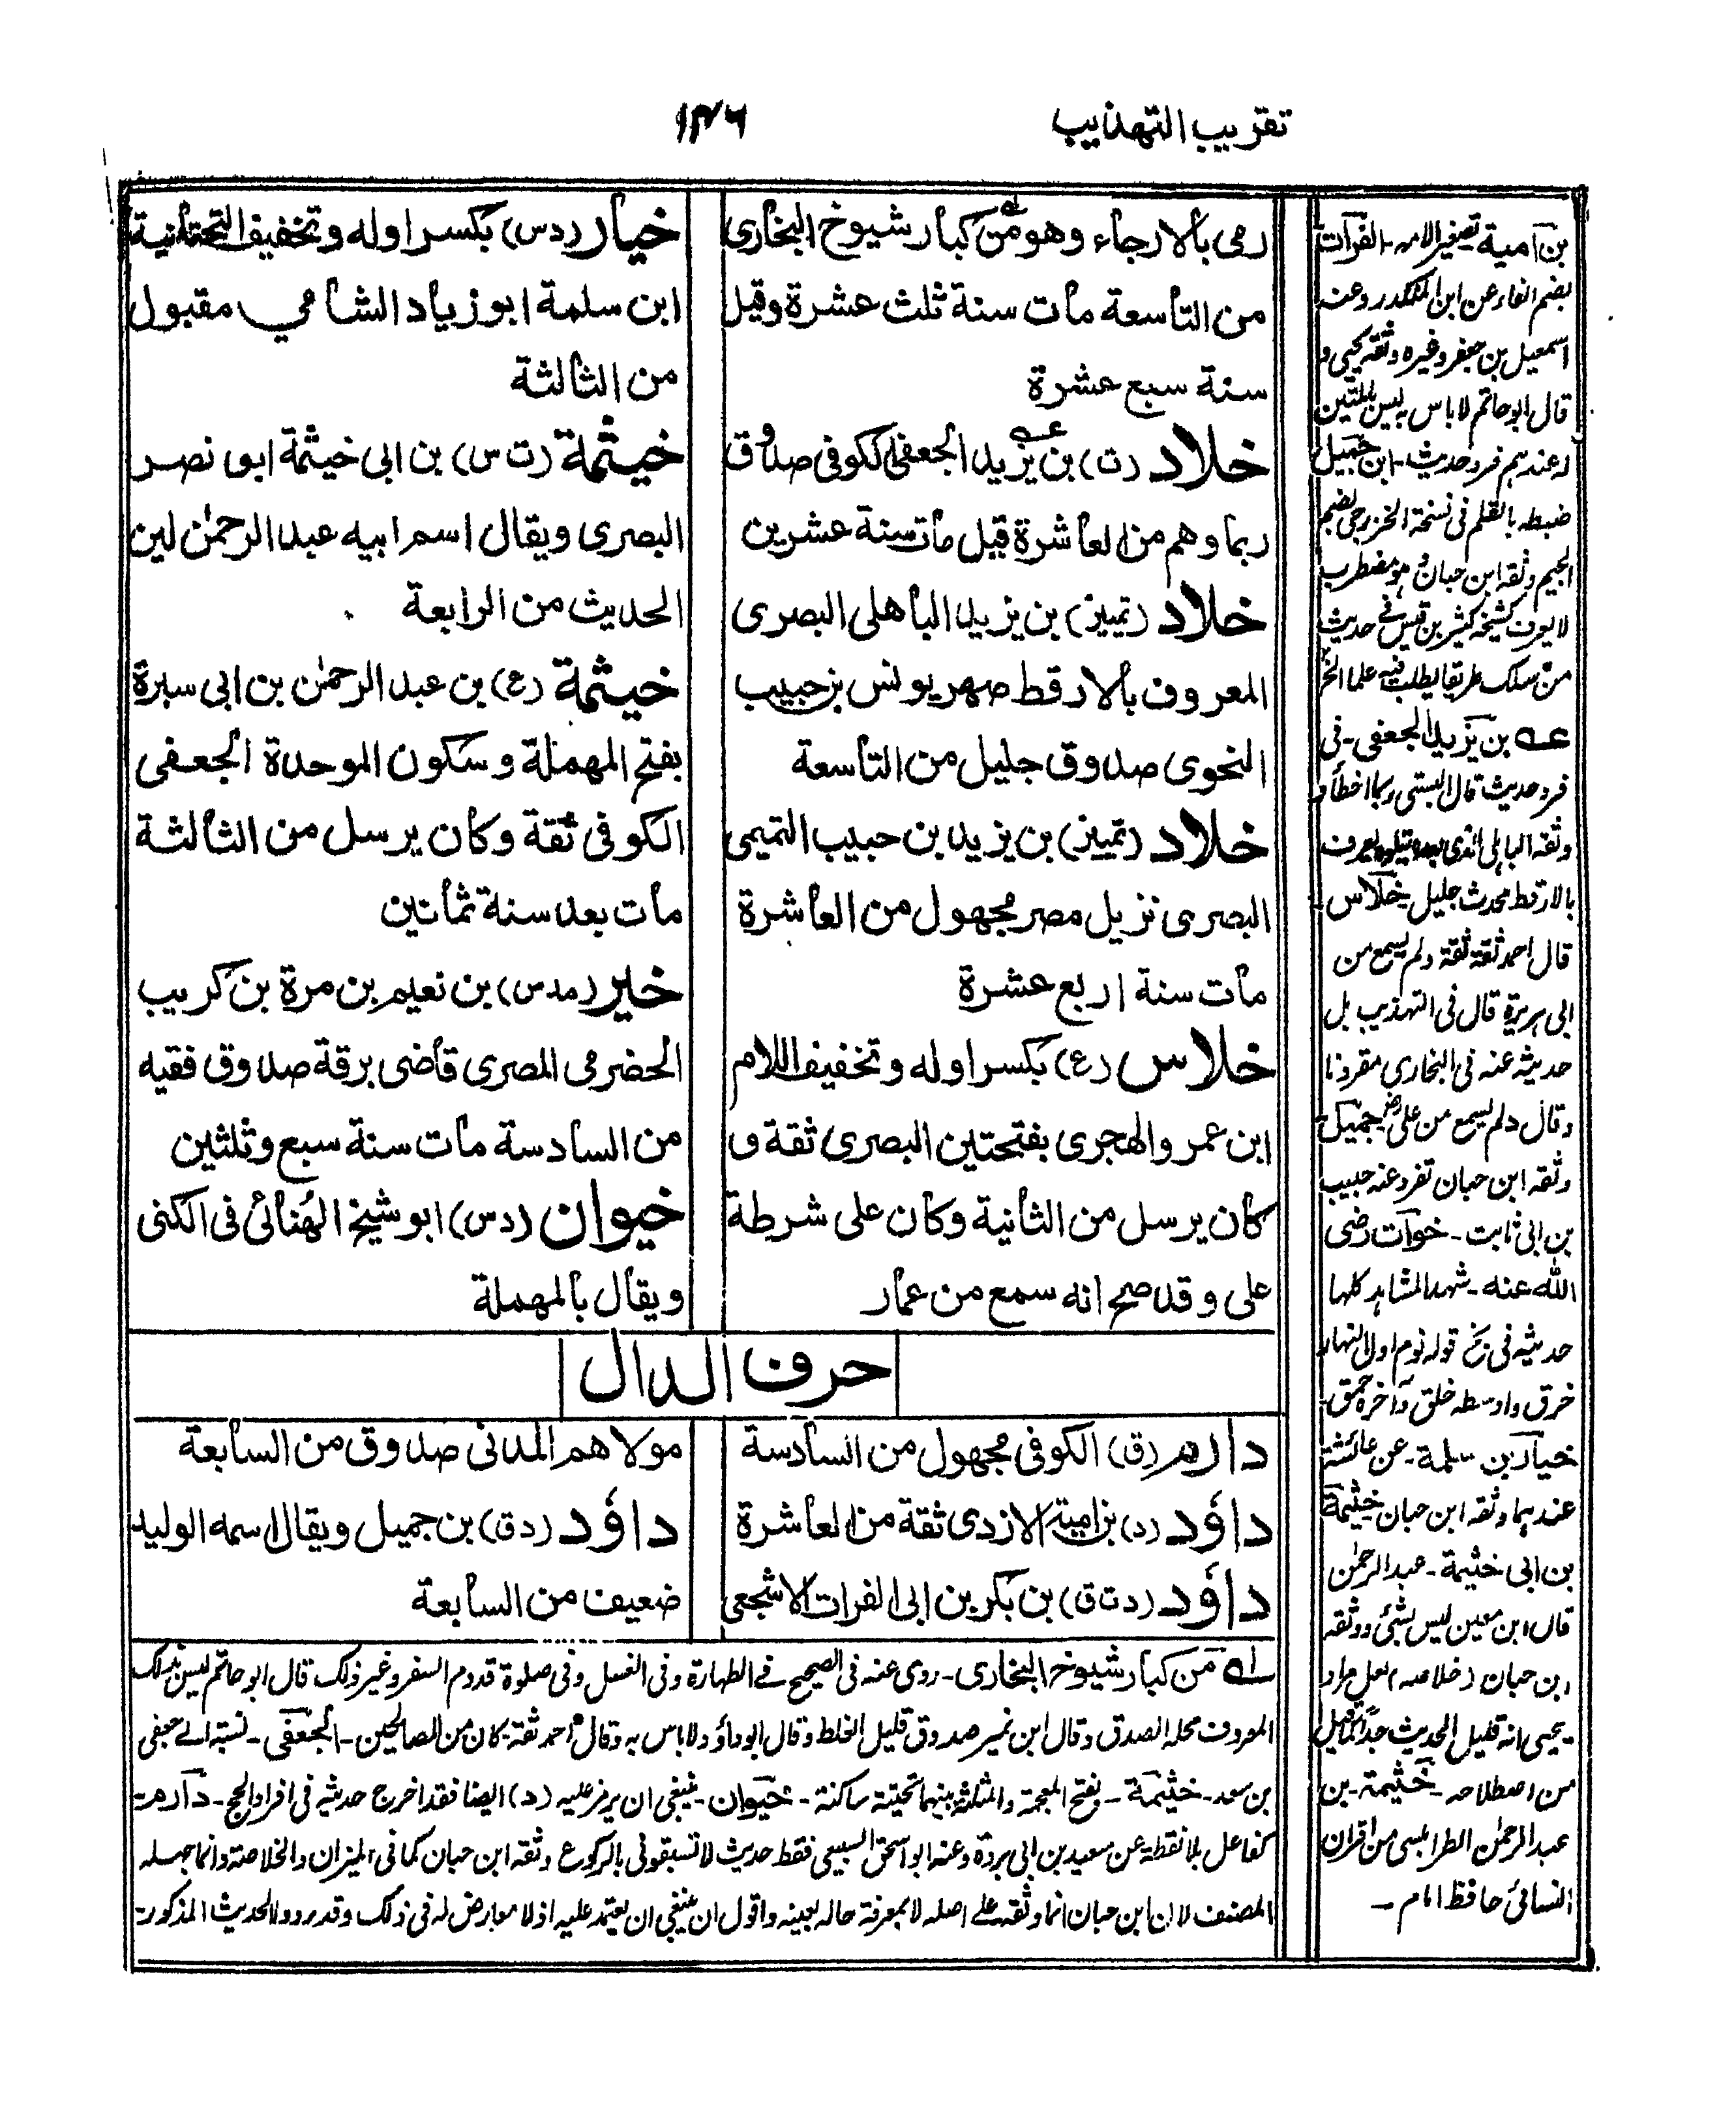 تقريب التهذيب
١٤٦
رمى بالارجاء وهو من كبار شيوخ البخارى
من التاسعة مات سنة ثلث عشرة وقيل
سنة سبع عشرة
خلاد (ت) بن يزيد الجعفى الكوفى صدوق
ربما وهم من العاشرة قيل مات سنة عشرين
خلاد (تمييز) بن يزيد الباهلى البصرى
المعروف بالارقط صهر يونس بن حبيب
النحوى صدوق جليل من التاسعة
خلاد (تمييز) بن يزيد بن حبيب التميمى
البصرى نزيل مصر مجهول من العاشرة
مات سنة اربع عشرة
خلاس (ع) بكسر اوله وتخفيف اللام
ابن عمرو الهجرى بفتحتين البصرى ثقة و
كان يرسل من الثانية وكان على شرطة
على وقد صح انه سمع من عمار
خيار (دس) بكسر اوله وتخفيف التحتانية
ابن سلمة ابو زياد الشامي مقبول
من الثالثة
خيثمة (ت س) بن ابى خيثمة ابو نصر
البصرى ويقال اسم ابيه عبد الرحمٰن لين
الحديث من الرابعة
خيثمة (ع) بن عبد الرحمٰن بن ابى سبرة
بفتح المهملة وسكون الموحدة الجعفى
الكوفى ثقة وكان يرسل من الثالثة
مات بعد سنة ثمانين
خير (مدس) بن نعيم بن مرة بن كريب
الحضرمى المصرى قاضى برقة صدوق فقيه
من السادسة مات سنة سبع وثلثين
خيوان (دس) ابو شيخ الهُنائى فى الكنى
ويقال بالمهملة
حرف الدال
دارم (ق) الكوفى مجهول من السادسة
داؤد (د) بن امية الازدى ثقة من العاشرة
داؤد (د ت ق) بن بكر بن ابى الفرات الاشجعى
مولاهم المدنى صدوق من السابعة
داؤد (دق) بن جميل ويقال اسمه الوليد
ضعيف من السابعة
له من كبار شيوخ البخارى - روى عنه فى الصحيح فے الطهارة وفى الغسل وفى صلوة قدوم السفر وغير ذلك قال ابو حاتم ليس بذلك
المعروف محله الصدق وقال ابن نمير صدوق قليل الغلط وقال ابو داؤد لا باس به وقال احمد ثقة كان من الصالحين - الجعفى - نسبة الے جعفى
بن سعد - خيثمة - بفتح المعجمة والمثلثة بينهما تحتية ساكنة - خيوان - ينبغى ان يرمز عليه (د) ايضا فقد اخرج حديثه فى افراد الحج - دارم
كفاعل بلا نقطة عن سعيد بن ابى بردة وعنه ابو اسحق السبيعى فقط حديث لا تسبقونى بالركوع وثقه ابن حبان كما فى الميزان والخلاصة وانما جهله
المصنف لان ابن حبان انما وثقه على اصله لا بمعرفة حاله بعينه واقول ان ينبغى ان يعتمد عليه اذ لا معارض له فى ذلك وقد رووا الحديث المذكور
بن امية تصغير الامة - الفرات
بضم الفاء عن ابن المنكدر وعنه
اسمعيل بن جعفر وغيره وثقه يحيى و
قال ابو حاتم لا باس به ليس بالمتين
له عندهم فرد حديث - ابن جميل
ضبطه بالقلم فى نسخة الخزرجى بضم
الجيم وثقه ابن حبان وهو مضطرب
لا يعرف كشيخه كثير بن قيس فے حديث
من سلك طريقا يطلب فيه علما الخ
عه بن يزيد الجعفى - فى
فرد حديث قال البستى ربما اخطأ و
وثقه الباهلى الذى بعده يعرف
بالارقط محدث جليل - خلاس -
قال احمد ثقة ثقة ولم يسمع من
ابى هريرة قال فى التهذيب بل
حديثه عنه فى البخارى مقرونا
وقال ولم يسمع من على رض - جميل
وثقه ابن حبان تفرد عنه حبيب
بن ابى ثابت - خوات رضى
الله عنه - شهد المشاهد كلها
حديثه فى بخ قوله نوم اول النهار
خرق واوسطه خلق وآخره حمق
خيار بن سلمة - عن عائشة
عندهما وثقه ابن حبان خيثمة
بن ابى خثيمة - عبد الرحمٰن
قال ابن معين ليس بشئ ووثقه
ابن حبان (خلاصه) لعل مراد
يحيى انه قليل الحديث جدا كما قيل
من اصطلاحه - خثيمة - بن
عبد الرحمٰن الطرابلسى من اقران
النسائى حافظ امام -